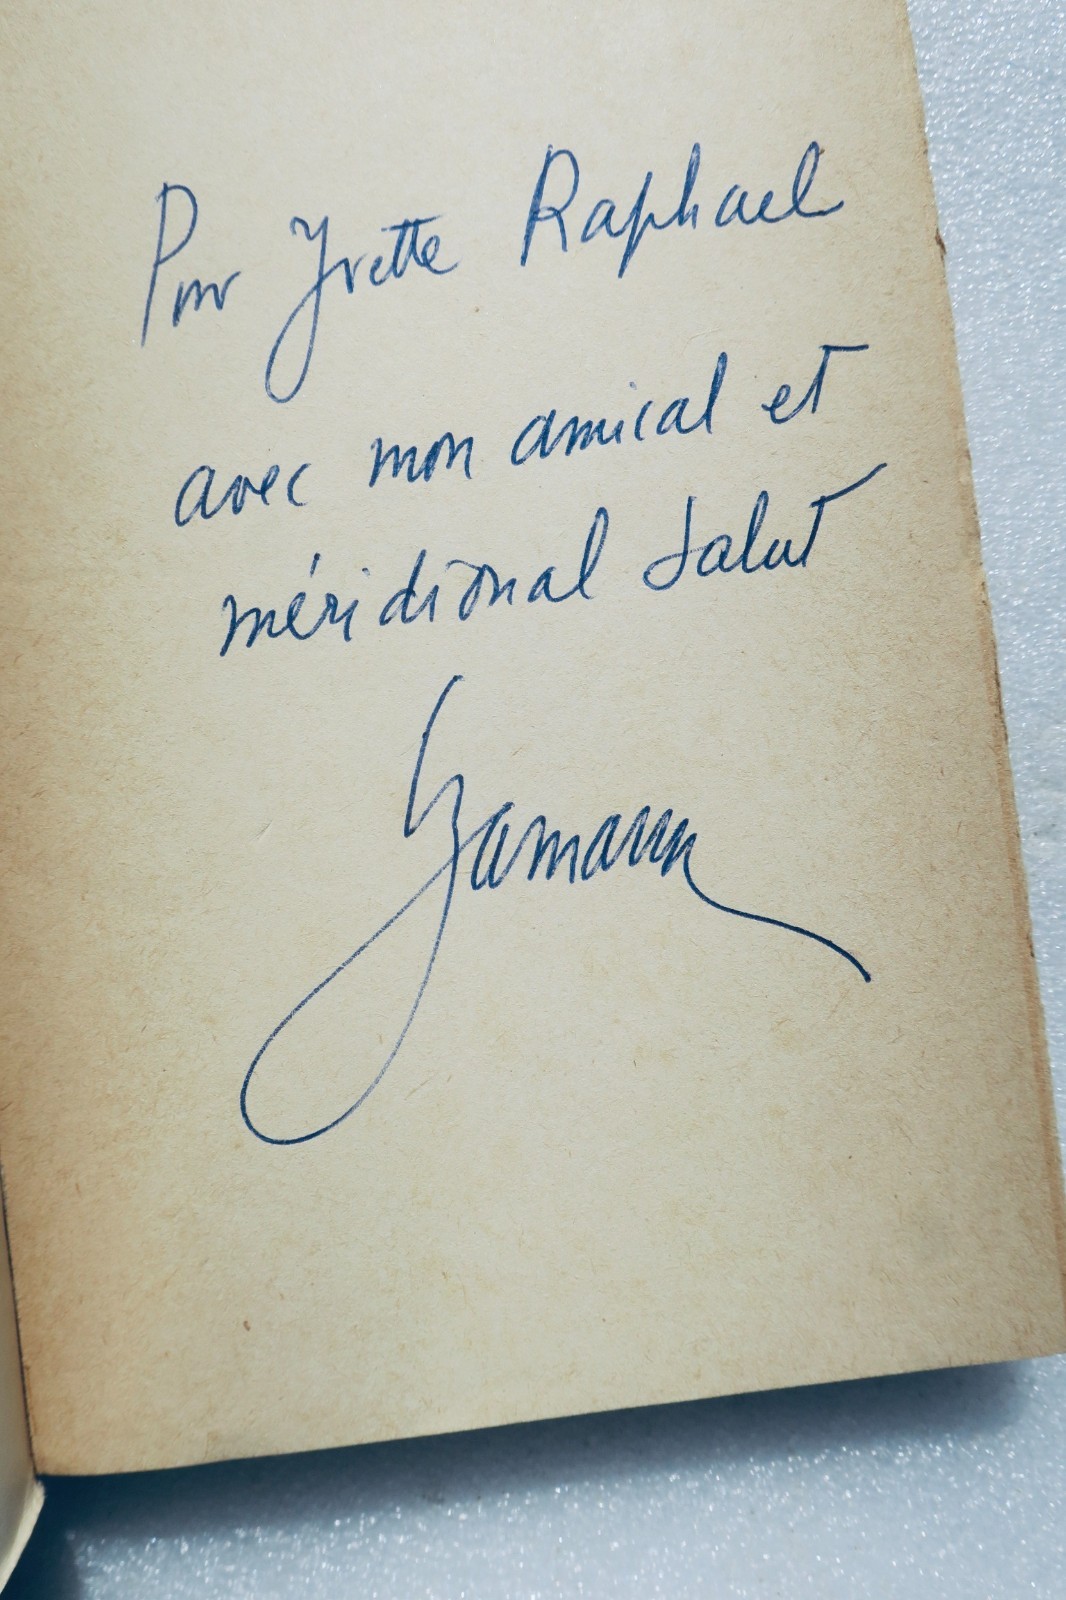 Pour Yvette Raphael
avec mon amical et
méridional salut